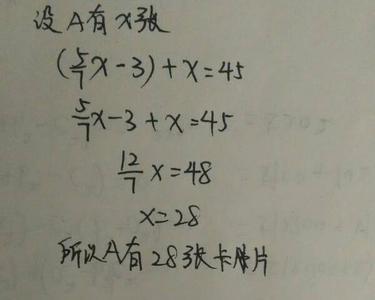 设A有x张
(5/7x-3)+x=45
5/7x-3+x=45
12/7x=48
x=28
所以A有28张卡片